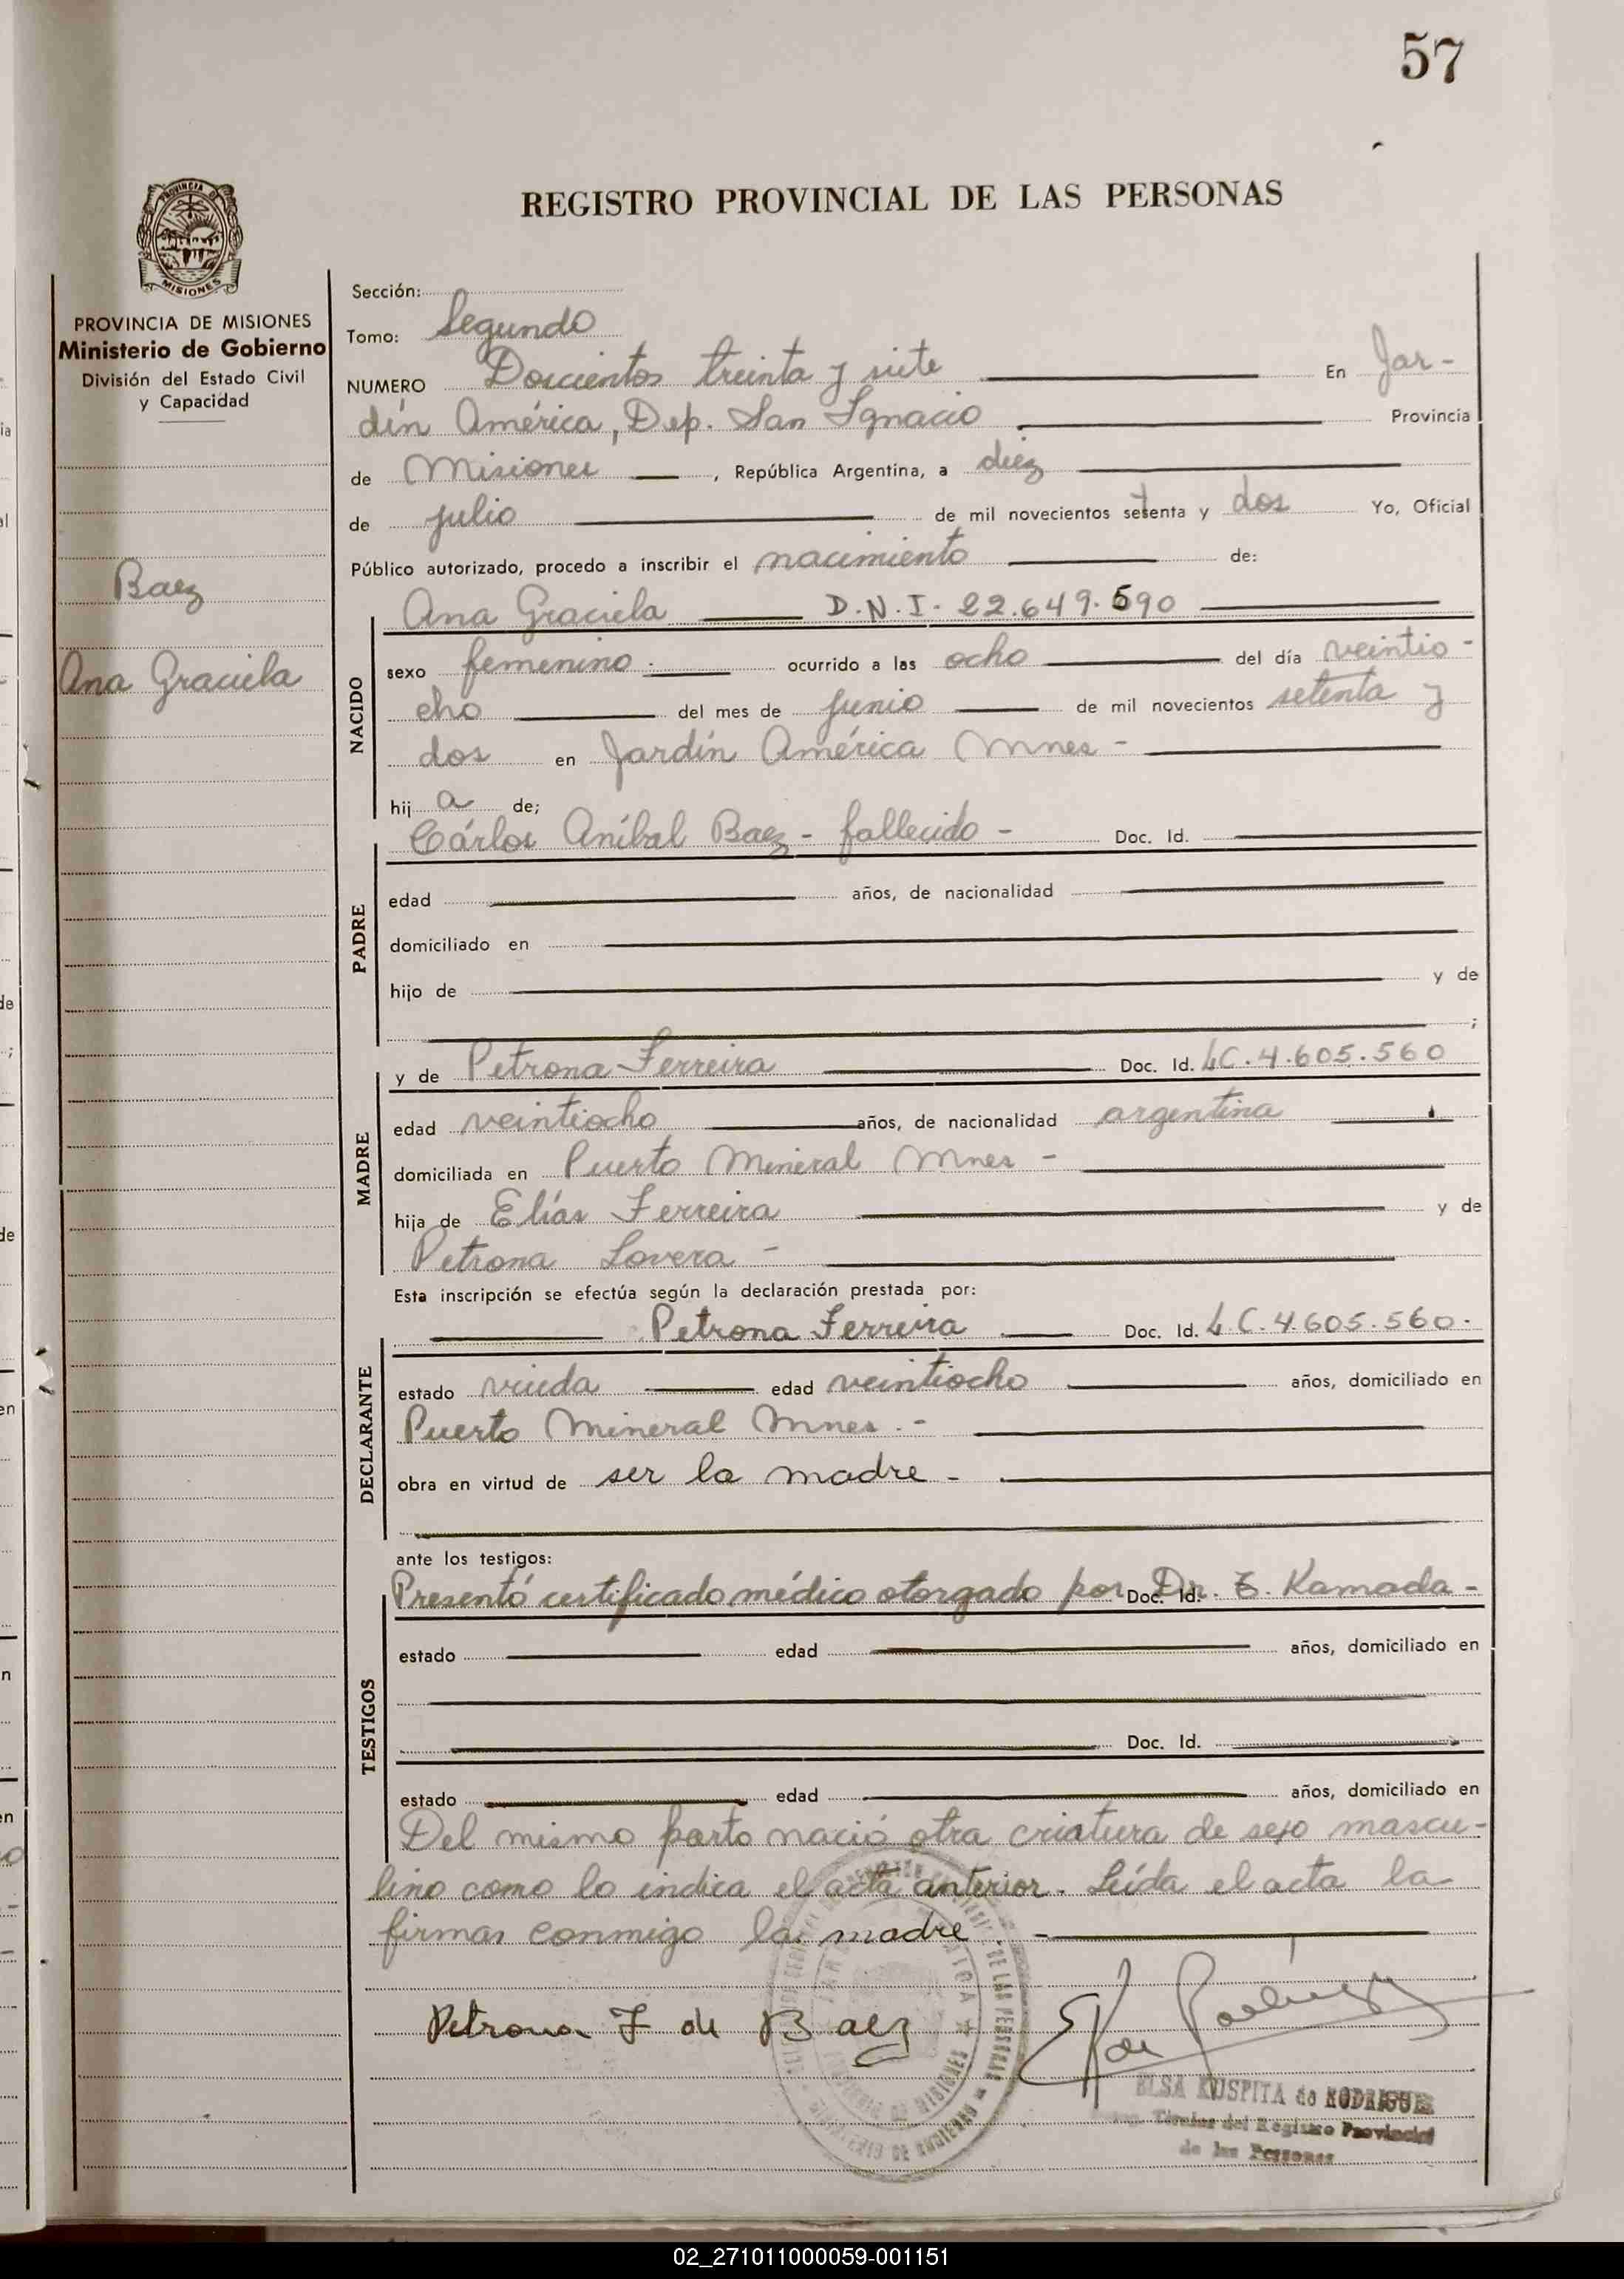 57
REGISTRO PROVINCIAL DE LAS PERSONAS
PROVINCIA DE MISIONES
Ministerio de Gobierno
División del Estado Civil
y Capacidad
Baez
Ana Graciela
Sección:
Tomo: Segundo
NUMERO Doscientos treinta y siete En Jar-
dín América, Dep. San Ignacio Provincia
de Misiones, República Argentina, a diez
de julio de mil novecientos setenta y dos Yo, Oficial
Público autorizado, procedo a inscribir el nacimiento de:
Ana Graciela D.N.I. 22.649.590
NACIDO
sexo femenino. ocurrido a las ocho del día veintio-
cho del mes de junio de mil novecientos setenta y
dos en Jardín América Mnes -
hij a de;
PADRE
Cárlos Aníbal Baez - fallecido - Doc. Id.
edad años, de nacionalidad
domiciliado en
hijo de y de
;
MADRE
y de Petrona Ferreira Doc. Id. LC. 4.605.560
edad veintiocho años, de nacionalidad argentina
domiciliada en Puerto Mineral Mnes -
hija de Elías Ferreira y de
Petrona Lovera -
Esta inscripción se efectúa según la declaración prestada por:
DECLARANTE
Petrona Ferreira Doc. Id. L.C. 4.605.560.
estado viuda edad veintiocho años, domiciliado en
Puerto Mineral Mnes. -
obra en virtud de ser la madre -
ante los testigos:
TESTIGOS
Presentó certificado médico otorgado por Doc. Id. Dr. Kamada -
estado edad años, domiciliado en
Doc. Id.
estado edad años, domiciliado en
Del mismo parto nació otra criatura de sexo mascu-
lino como lo indica el acta anterior. Leída el acta la
firman conmigo la madre -
Petrona F de Baez
ELSA KUSPITA de RODRIGUEZ
Titular del Registro Provincial
de las Personas
02_271011000059-001151